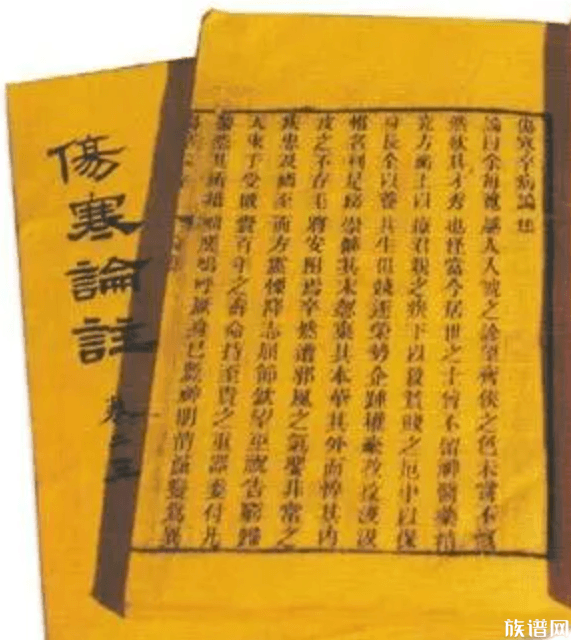 傷寒卒病論集
論曰余每覽越人入虢之診望齊侯之色未嘗不慨
然歎其才秀也怪當今居世之士曾不留神醫藥精
究方術上以療君親之疾下以救貧賤之厄中以保
身長全以養其生但競逐榮勢企踵權豪孜孜汲汲
惟名利是務崇飾其末忽棄其本華其外而悴其內
皮之不存毛將安附焉卒然遭邪風之氣嬰非常之
疾患及禍至而方震慄降志屈節欽望巫祝告窮歸
天束手受敗賫百年之壽命持至貴之重器委付凡
醫恣其所措咄嗟嗚呼厥身已斃神明消滅變為異
傷寒論註
卷
族谱网